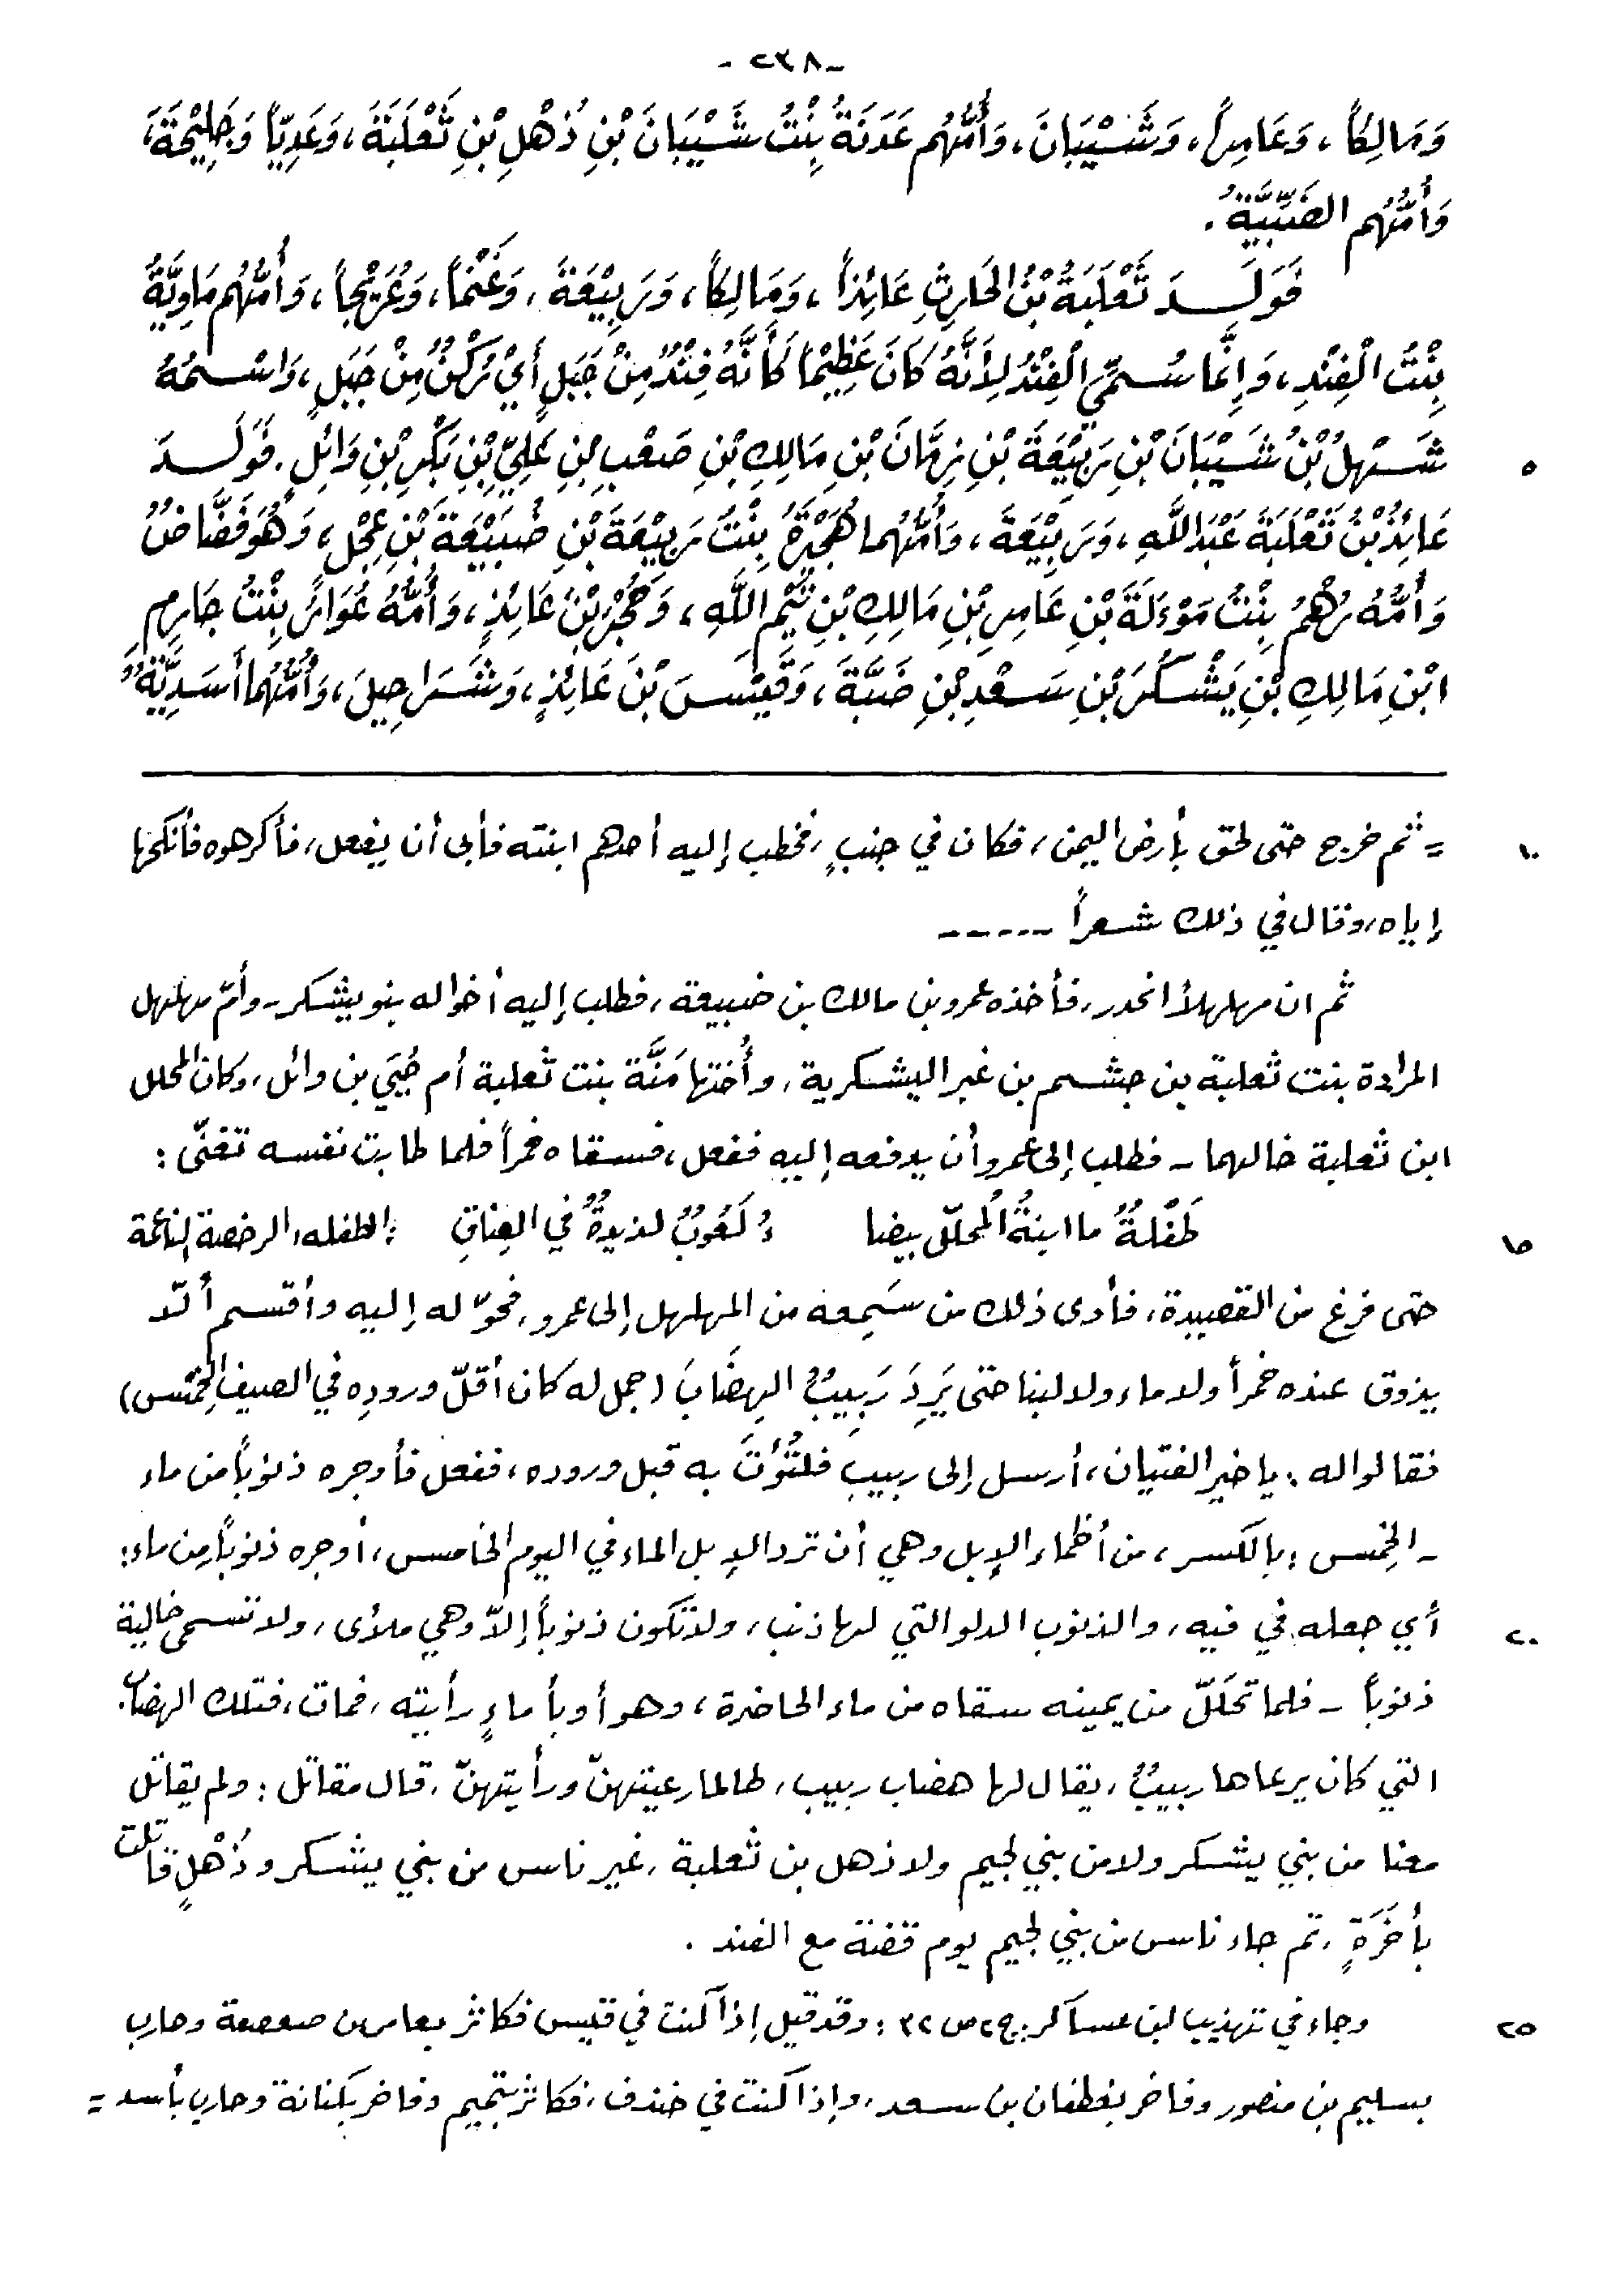 - ٢٣٨ -
وَمَالِكاً ، وَعَامِراً ، وَشَيْبَانَ ، وَأُمُّهُم عَدَنَةُ بِنْتُ شَيْبَانَ بْنِ ذُهْلِ بْنِ ثَعْلَبَةَ ، وَعَدِيّاً وَجَلِيْحَةَ ،
وَأُمُّهُم الضَّبِّيَّةُ .
فَوَلَدَ ثَعْلَبَةُ بْنُ الحَارِثِ عَائِذاً ، وَمَالِكاً ، وَرَبِيْعَةَ ، وَغَنْماً ، وَعُرَيْجاً ، وَأُمُّهُم مَاوِيَّةُ
بِنْتُ الْفِنْدِ ، وَإِنَّمَا سُمِّيَ الْفِنْدُ لِأَنَّهُ كَانَ عَظِيْماً كَأَنَّهُ فِنْدٌ مِنْ جَبَلٍ أَيْ رُكْنٌ مِنْ جَبَلٍ ، وَاسْمُهُ
شَهْلُ بْنُ شَيْبَانَ بْنِ رَبِيْعَةَ بْنِ زِمَّانَ بْنِ مَالِكِ بْنِ صَعْبِ بْنِ عَلِيِّ بْنِ بَكْرِ بْنِ وَائِلٍ . فَوَلَدَ
٥
عَائِذُ بْنُ ثَعْلَبَةَ عَبْدَاللَّهِ ، وَرَبِيْعَةَ ، وَأُمُّهُمَا هُجَيْرَةُ بِنْتُ رَبِيْعَةَ بْنِ ضُبَيْعَةَ بْنِ عِجْلٍ ، وَهُوَ فَضَّاضٌ
وَأُمُّهُ رُهْمُ بِنْتُ مَوْءَلَةَ بْنِ عَامِرِ بْنِ مَالِكِ بْنِ تَيْمِ اللَّهِ ، وَحُجْرَ بْنَ عَائِذٍ ، وَأُمُّهُ عُوَارُ بِنْتُ جَارِمِ
ابْنِ مَالِكِ بْنِ يَشْكُرَ بْنِ سَعْدِ بْنِ ضَبَّةَ ، وَقَيْسَ بْنَ عَائِذٍ ، وَشَرَاحِيلَ ، وَأُمُّهُمَا أَسَدِيَّةٌ ،
= ثم خرج حتى لحق بأرض اليمن ، فكان في جنبٍ ، فخطب إليه أحدهم ابنته فأبى أن يفعل ، فأكرهوه فأنكحها
١٠
إياه ، وقال في ذلك شعراً ------
ثم ان مهلهلاً انحدر ، فأخذه عمرو بن مالك بن ضبيعة ، فطلب إليه أخواله بنو يشكر - وأمّ مهلهل
المرادة بنت ثعلبة بن جشم بن غبر اليشكرية ، وأُختها مَنَّة بنت ثعلبة أم حُيَي بن وائل ، وكان المحلل
ابن ثعلبة خالهما - فطلب إلى عمرو أن يدفعه إليه ففعل ، فسقاه خمراً فلما طابت نفسه تغنّى :
طَفْلةٌ ما ابنةُ المُحلّل بيضا ءُ لَعُوبٌ لذيذةٌ في العِناقِ : الطفلة ، الرخصة الناعمة
١٥
حتى فرغ من القصيدة ، فأدى ذلك من سَمِعه من المهلهل إلى عمرو ، فحوّله إليه وأقسم ألاّ
يذوق عنده خمراً ولا ماء ولا لبنا حتى يَرِدَ رَبِيبُ الهِضَابَ (جمل له كان أقلّ وروده في الصيف الخِمْس)
فقالوا له : يا خير الفتيان ، أرسل إلى ربيب فلتُؤْتَ به قبل وروده ، ففعل فأوجره ذنوباً من ماء
- الخِمس : بالكسر ، من أظماء الإبل وهي أن ترد الإبل الماء في اليوم الخامس ، أوجره ذنوباً من ماء :
أي جعله في فيه ، والذنوب الدلو التي لها ذنب ، ولا تكون ذنوباً إلاّ وهي ملأى ، ولا تسمى خالية
٢٠
ذنوباً - فلما تحَلّل من يمينه سقاه من ماء الحاضرة ، وهو أوبأ ماءٍ رأيته ، فمات ، فتلك الهضاب
التي كان يرعاها ربيبٌ ، يقال لها هضاب ربيب ، طالما رعيتهنّ ورأيتهنّ ، قال مقاتل : ولم يقاتل
معنا من بني يشكر ولا من بني لجيم ولا ذهل بن ثعلبة ، غير ناس من بني يشكر وذُهْلٍ قاتلت
بأَخَرَةٍ ، ثم جاء ناس من بني لجيم يوم قضة مع الفند .
وجاء في تهذيب ابن عساكر : ج ٢ ص ٣٢ : وقد قيل إذا كنت في قيس فكاثر بعامر بن صعصعة وحارب
٢٥
بسليم بن منصور وفاخر بغطفان بن سعد ، وإذا كنت في خندف ، فكاثر بتميم وفاخر بكنانة وحارب بأسد =